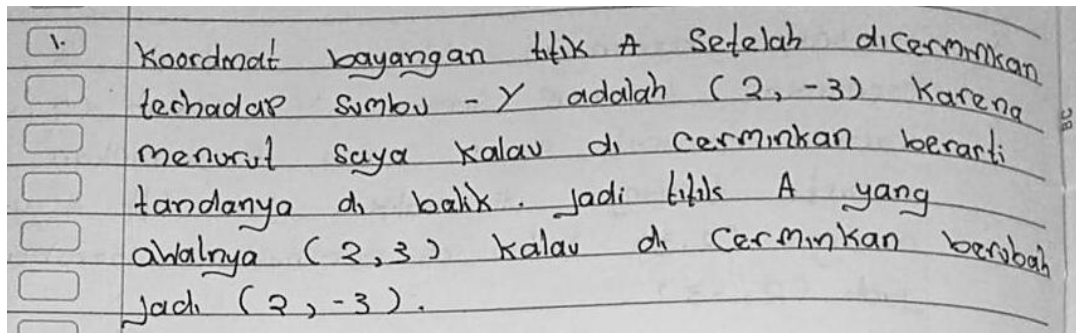 1. Koordinat bayangan titik A Setelah dicerminkan
terhadap Sumbu - Y adalah (2, -3) Karena
menurut Saya kalau di cerminkan berarti
tandanya di balik. Jadi titik A yang
awalnya (2,3) kalau di Cerminkan berubah
Jadi (2, -3).